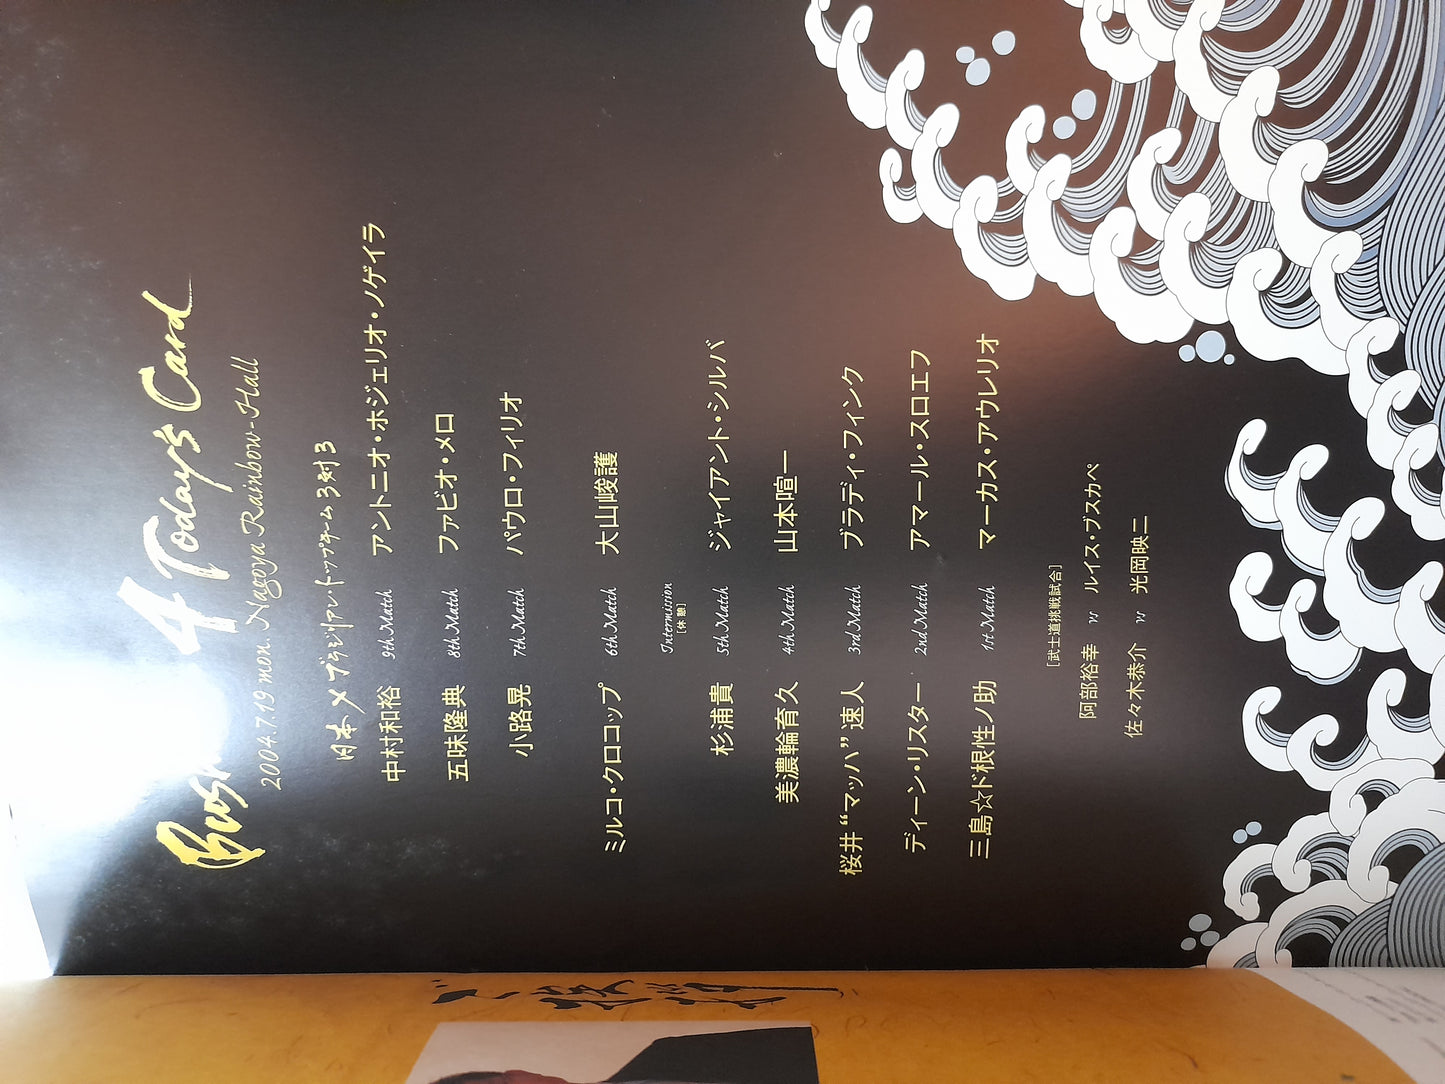 4 Today's Card
2004.7.19 mon. Nagoya Rainbow-Hall
日本×ブラジリアン・トップチーム 3対3
中村和裕 9th Match アントニオ・ホジェリオ・ノゲイラ
五味隆典 8th Match ファビオ・メロ
小路晃 7th Match パウロ・フィリオ
ミルコ・クロコップ 6th Match 大山峻護
Intermission
[休憩]
杉浦貴 5th Match ジャイアント・シルバ
美濃輪育久 4th Match 山本喧一
桜井“マッハ”速人 3rd Match ブラディ・フィンク
ディーン・リスター 2nd Match アマール・スロエフ
三島☆ド根性ノ助 1st Match マーカス・アウレリオ
[武士道挑戦試合]
阿部裕幸 vs ルイス・ブスカペ
佐々木恭介 vs 光岡映二